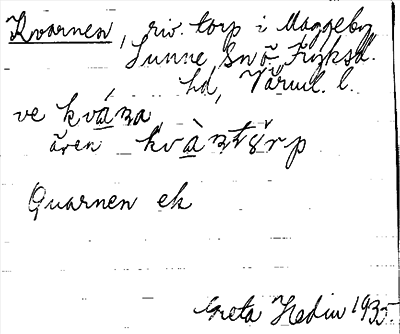 Kvarnen, riv. torp i Maggeby
Sunne sn ö. Fryksd.
hd, Värml. l.
ve kvána
även kvàntôrp
Quarnen ek
Greta Hedin 1935.